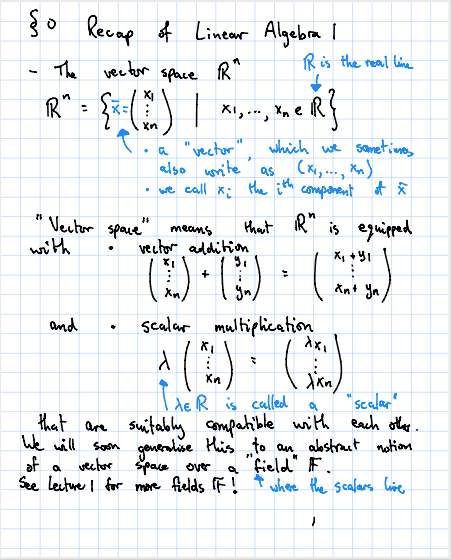 §0 Recap of Linear Algebra 1
- The vector space ℝⁿ
ℝ is the real line
ℝⁿ = { x̄ = (x₁ ⋮ xₙ) | x₁, ..., xₙ ∈ ℝ }
· a "vector", which we sometimes
also write as (x₁, ..., xₙ)
· we call xᵢ the iᵗʰ component of x̄
"Vector space" means that ℝⁿ is equipped
with · vector addition
(x₁ ⋮ xₙ) + (y₁ ⋮ yₙ) = (x₁ + y₁ ⋮ xₙ + yₙ)
and · scalar multiplication
λ (x₁ ⋮ xₙ) = (λx₁ ⋮ λxₙ)
λ ∈ ℝ is called a "scalar"
that are suitably compatible with each other.
We will soon generalise this to an abstract notion
of a vector space over a "field" 𝔽.
See Lecture 1 for more fields 𝔽!
where the scalars live